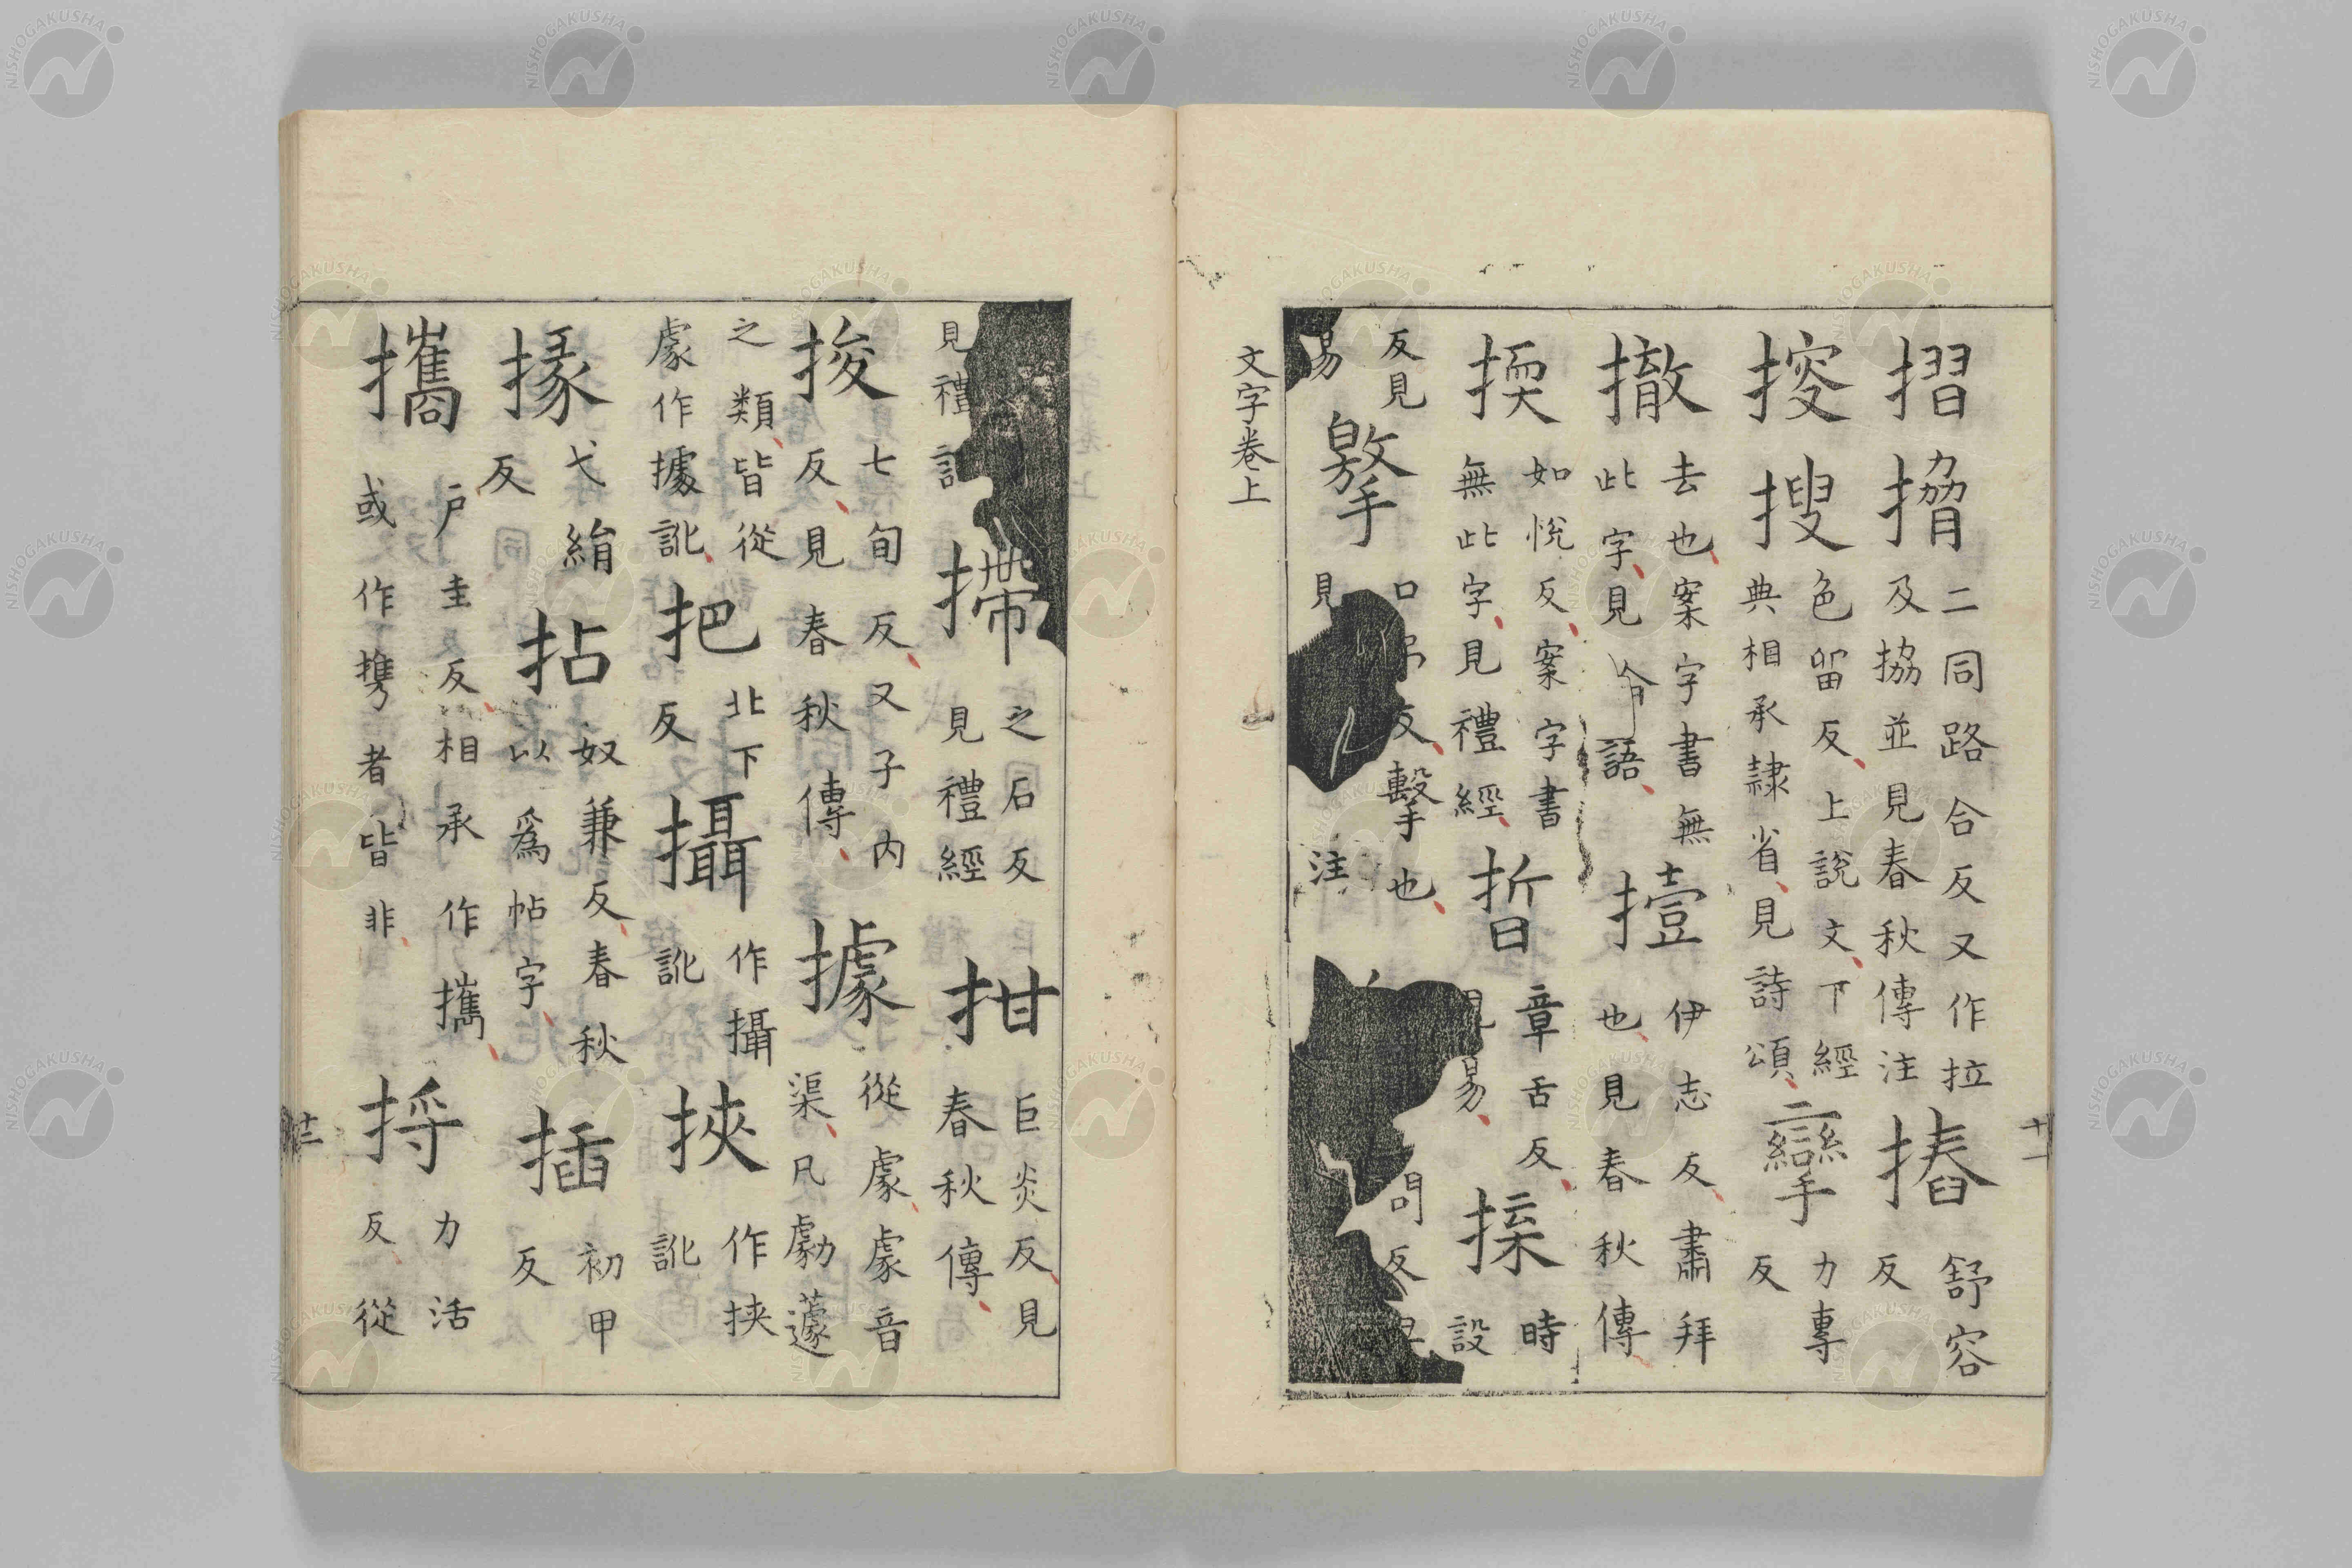 摺㨍二同路合反又作拉及協並見春秋傳注摏舒容反
㮴搜色留反上說文下經典相承隸省見詩頌攣力專反
撤去也案字書無此字見論語㩖伊志反肅拜也見春秋傳
擩如悅反案字書無此字見禮經晢章舌反見易揲時設
反見易擊口弔反擊也見注問反
見禮記㨫之石反見禮經拑巨炎反見春秋傳
捘七旬反又子內反見春秋傳據從豦豦音渠凡劇蘧
之類皆從豦作據訛把北下反攝作攝訛挾作挟訛
掾弋絹反拈奴兼反春秋以為帖字插初甲反
攜戶圭反相承作㩗或作携者皆非捋力活反從
文字卷上
十二
十三
NISHOGAKUSHA